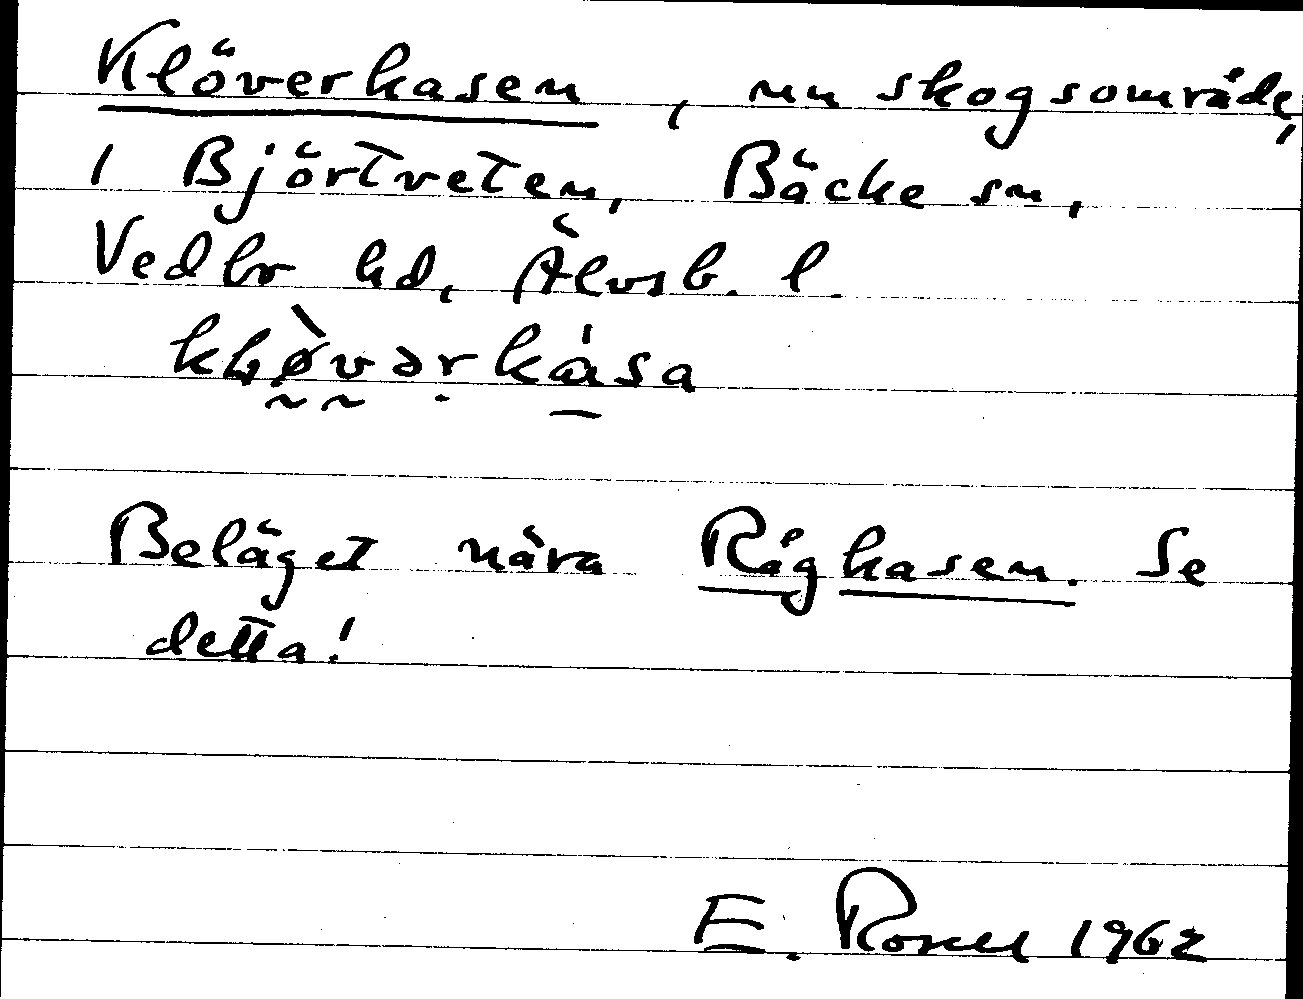 Klöverkasen, nu skogsområde,
i Björtveten, Bäcke sn,
Vedbo hd, Älvsb. l.
Beläget nära Rågkasen. Se
detta!
E. Rosell 1962